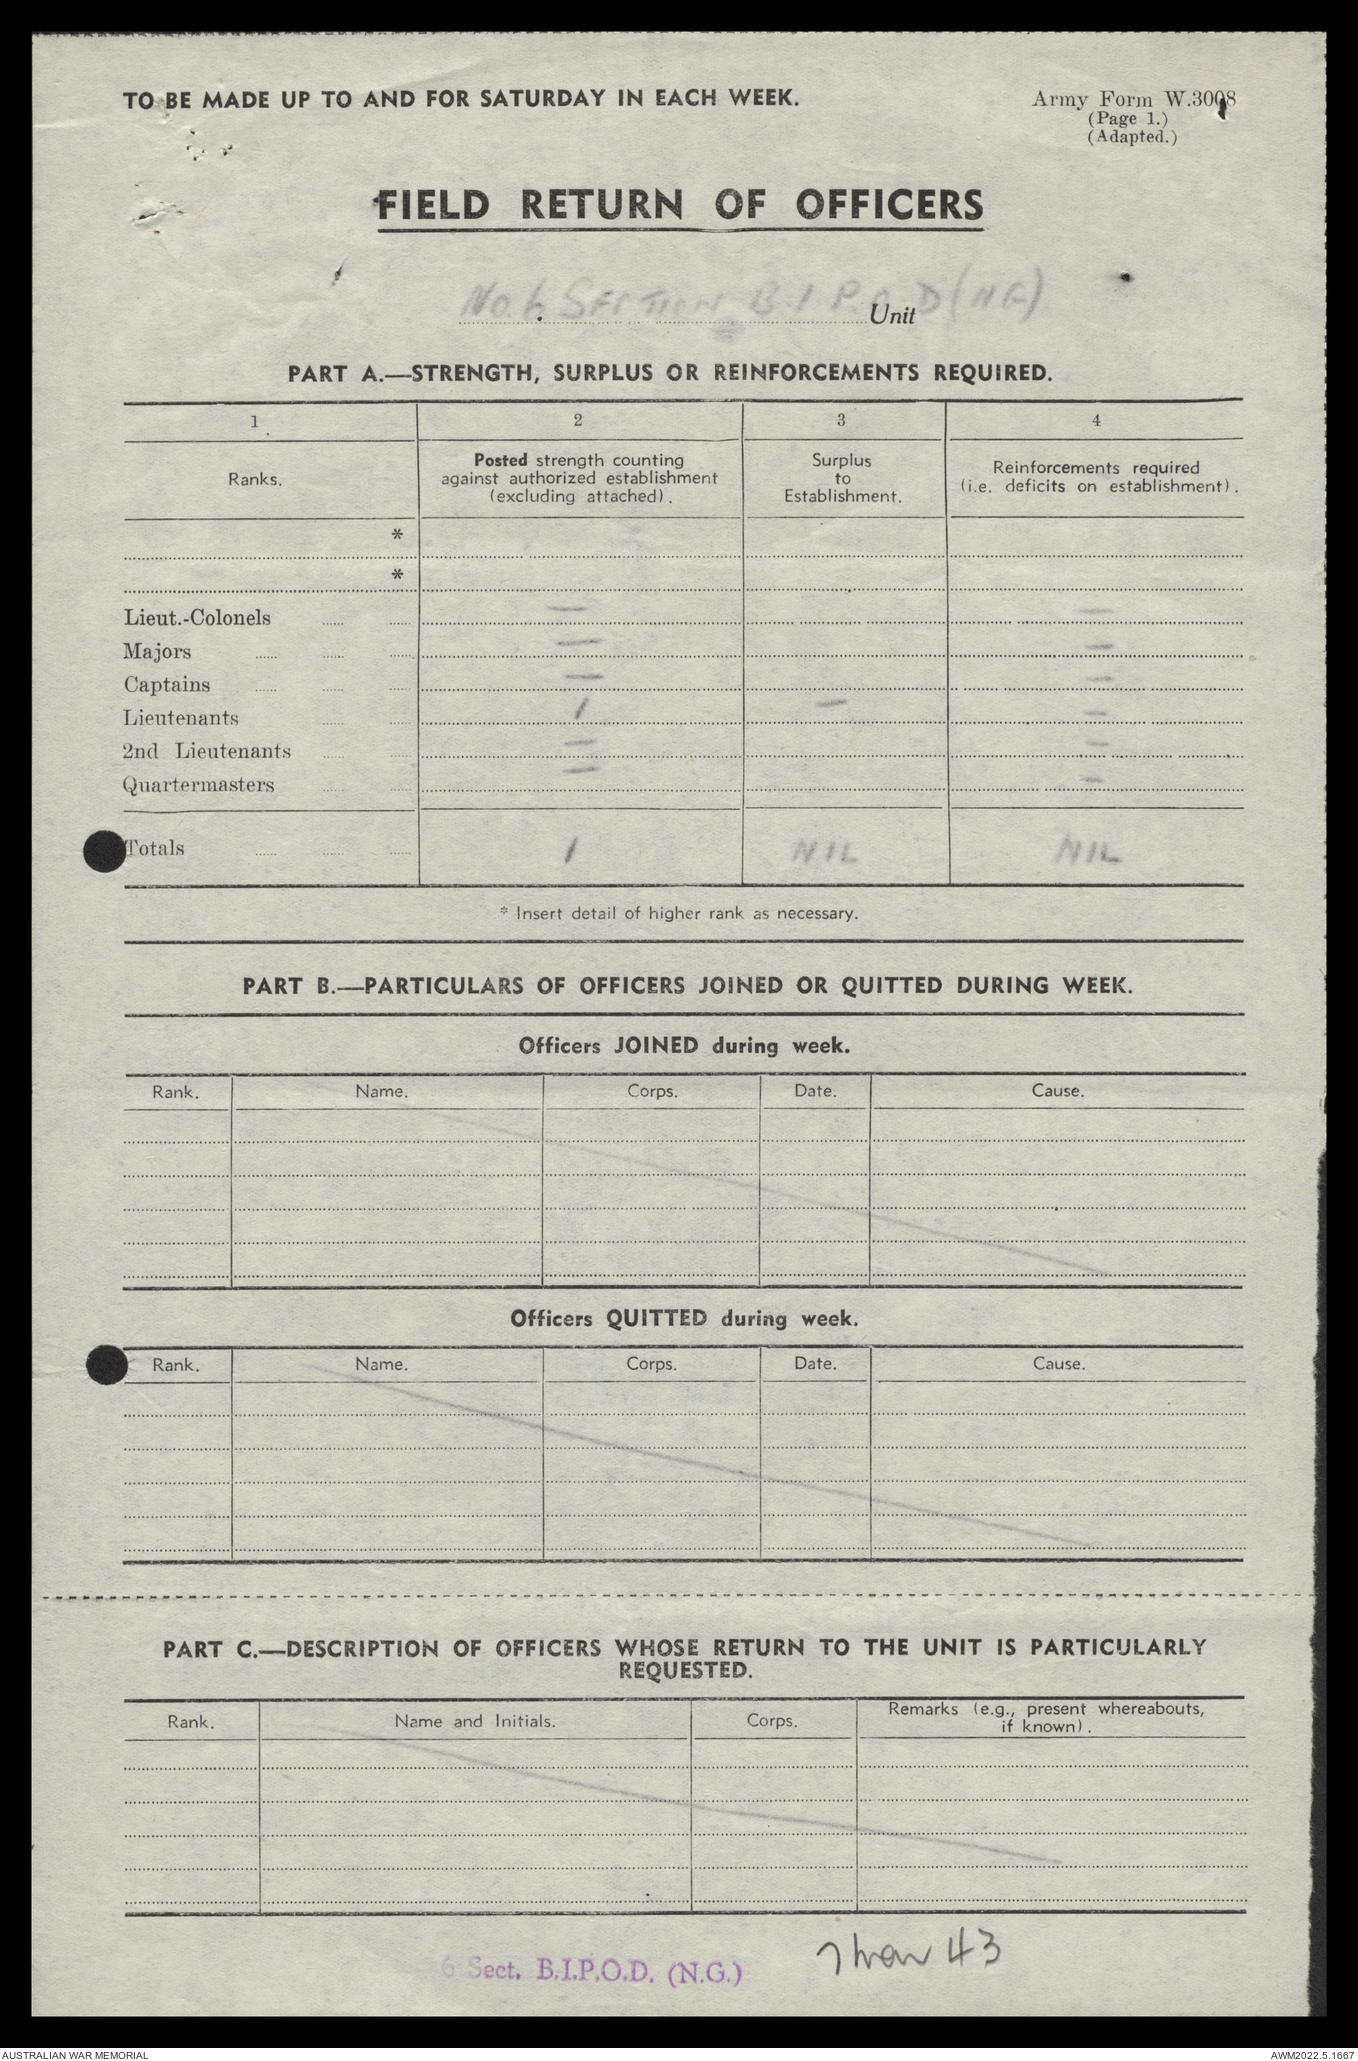 TO BE MADE UP TO AND FOR SATURDAY IN EACH WEEK.
Army Form W.3008
(Page 1.)
(Adapted.)
FIELD RETURN OF OFFICERS
No. 6 SECTION B.I.P.O.D (NG)
Unit
PART A.—STRENGTH, SURPLUS OR REINFORCEMENTS REQUIRED.
1 2 3 4
Ranks. Posted strength counting against authorized establishment (excluding attached). Surplus to Establishment. Reinforcements required (i.e. deficits on establishment).
*
*
Lieut.-Colonels — —
Majors — —
Captains — —
Lieutenants 1 — —
2nd Lieutenants — —
Quartermasters — —
Totals 1 NIL NIL
* Insert detail of higher rank as necessary.
PART B.—PARTICULARS OF OFFICERS JOINED OR QUITTED DURING WEEK.
Officers JOINED during week.
Rank. Name. Corps. Date. Cause.
Officers QUITTED during week.
Rank. Name. Corps. Date. Cause.
PART C.—DESCRIPTION OF OFFICERS WHOSE RETURN TO THE UNIT IS PARTICULARLY
REQUESTED.
Rank. Name and Initials. Corps. Remarks (e.g., present whereabouts, if known).
6 Sect. B.I.P.O.D. (N.G.)
43
AUSTRALIAN WAR MEMORIAL
AWM2022.5.1667